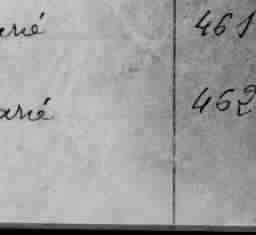 arié 461
arié 462